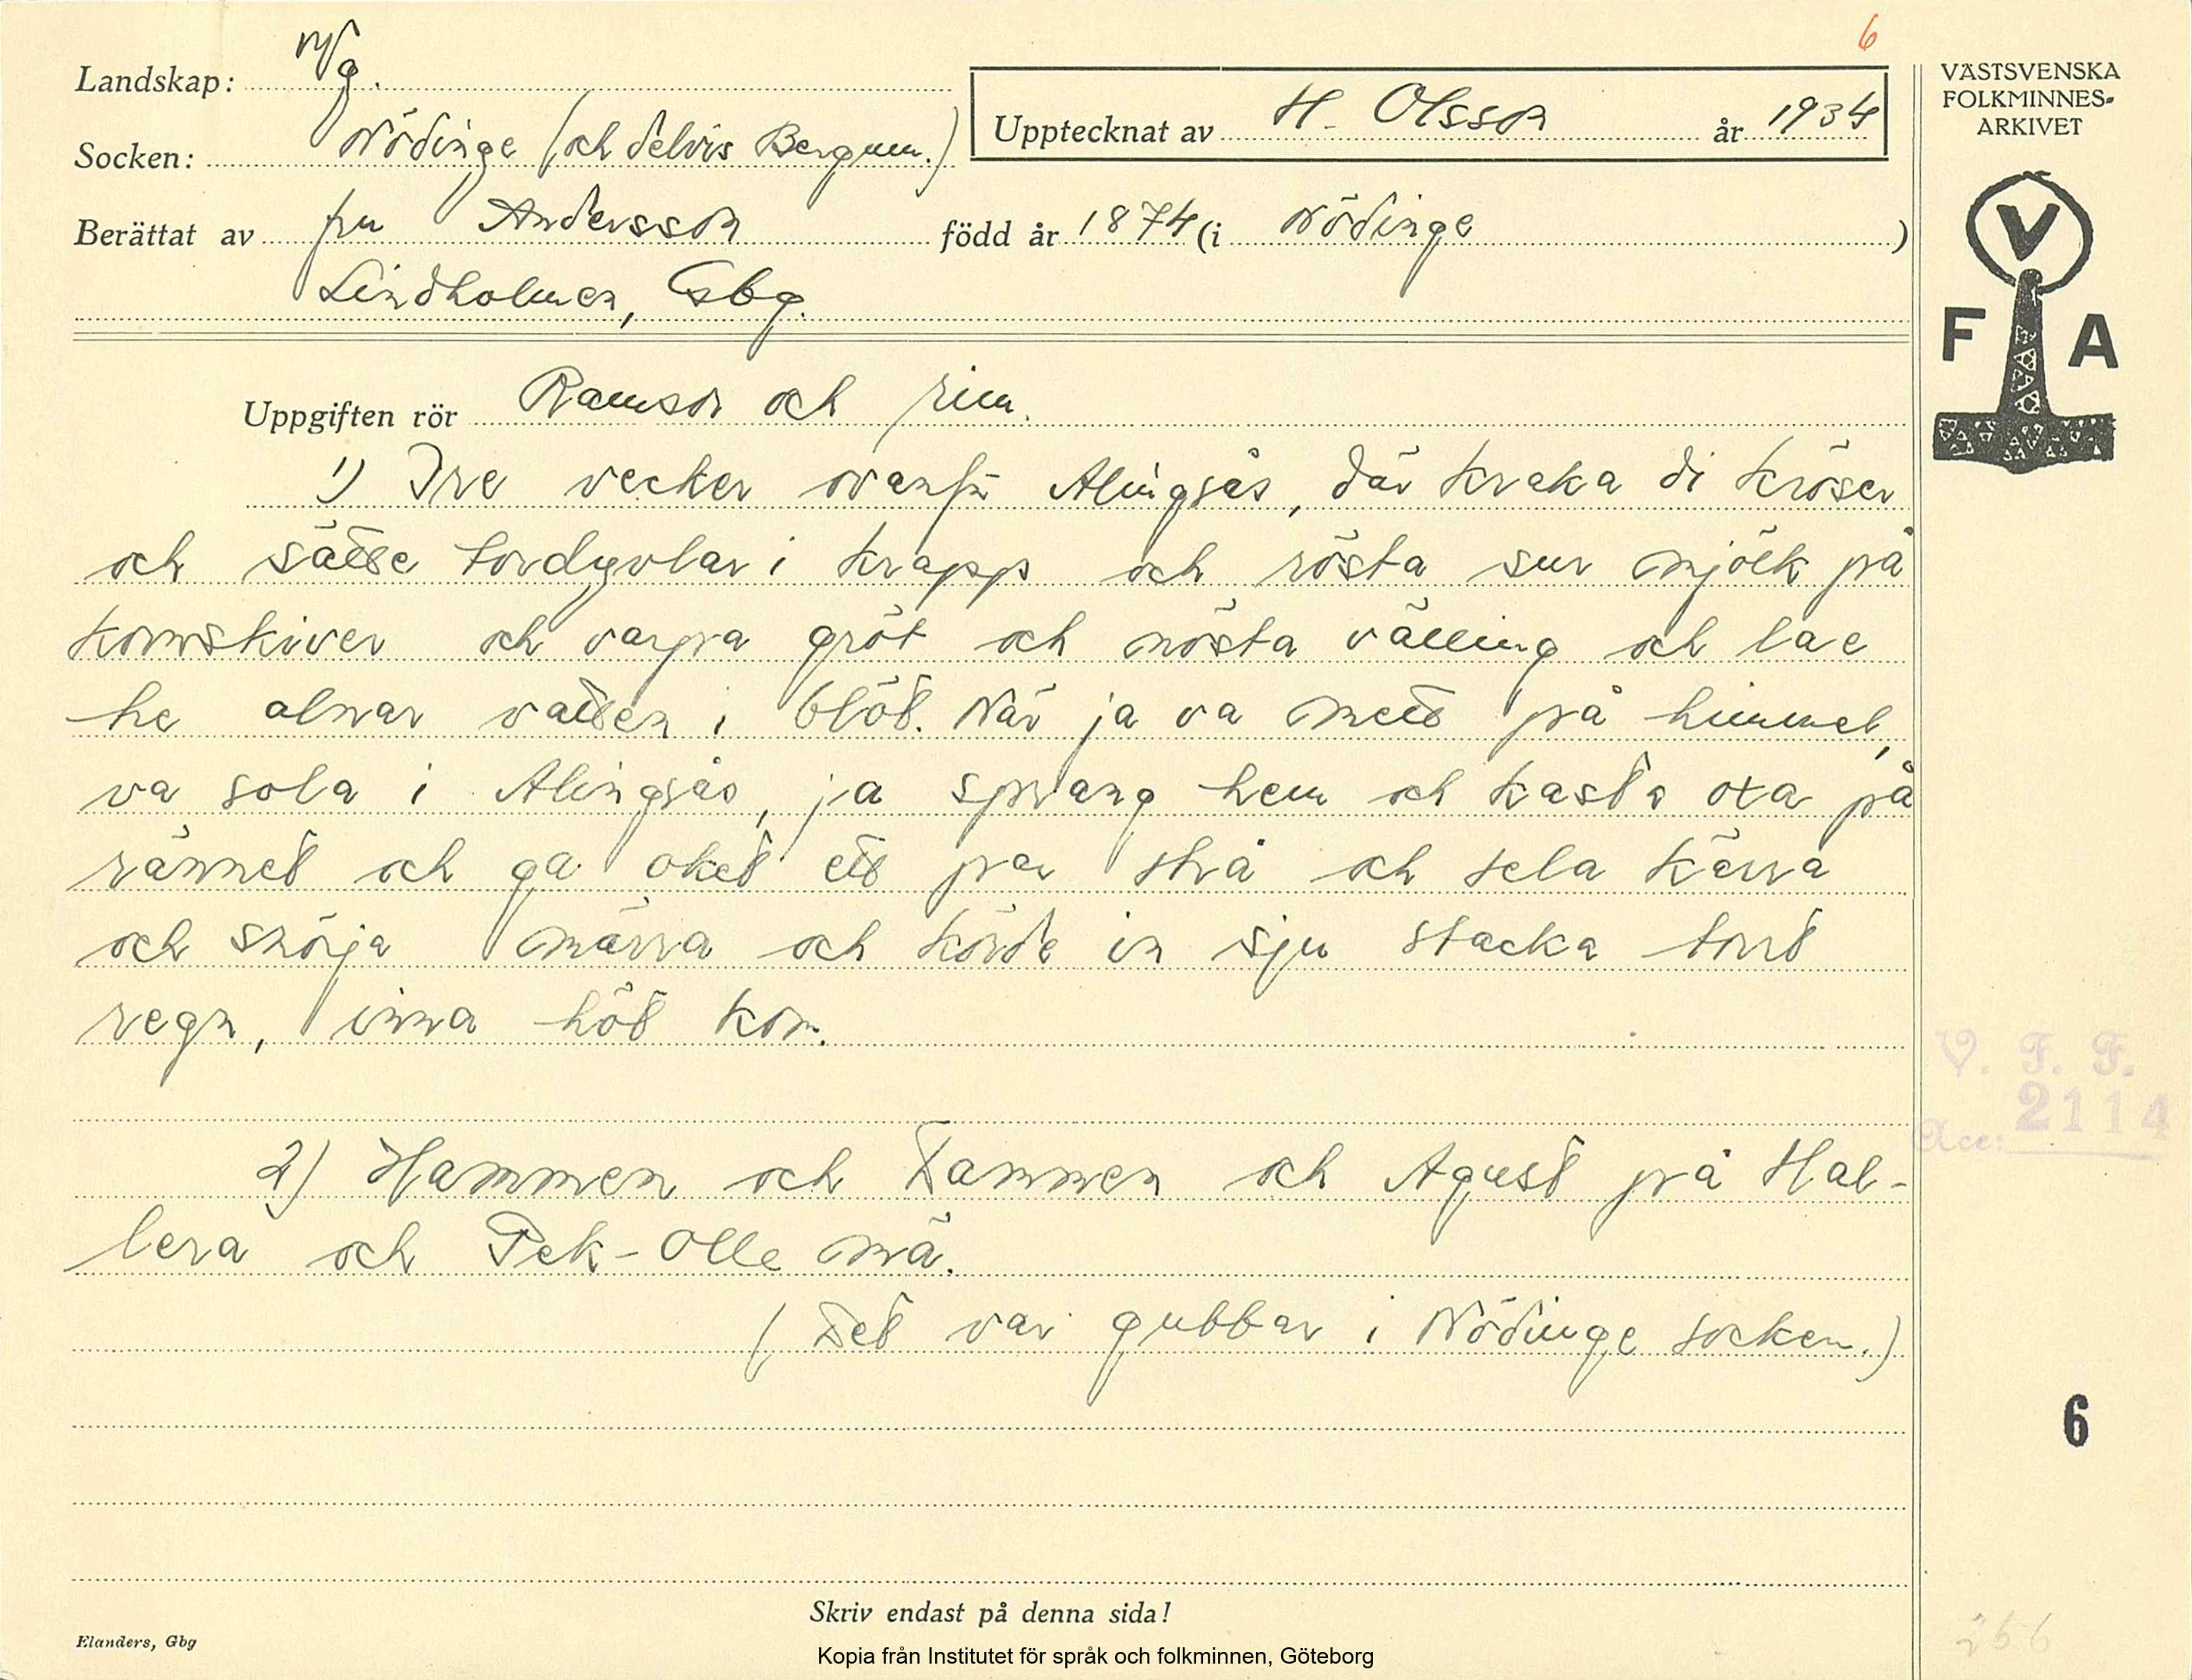 6
Landskap: Vg.
Socken: Nödinge (och delvis Bergum.)
Upptecknat av H. Olsson år 1934
Berättat av fru Andersson född år 1874 (i Nödinge )
Lindholmen, Gbg.
VÄSTSVENSKA
FOLKMINNES-
ARKIVET
V
F A
Uppgiften rör Ramsor och rim.
1) Tre vecker ovanför Alingsås, där kraka di kröser
och sätte tordyvlar i krapp och rösta sur mjölk på
kornskiver och varpa gröt och nösta välling och lae
he alnar vatten i blöt. När ja va mett på himmel,
va sola i Alingsås, ja sprang hem och kasta oxa på
rännet och ga oket ett par strå och sela kärra
och smörja märra och körde in sju stacka tort
regn, inna höt kom.
2) Hammen och Dammen och Agust på Hal-
lera och Pek-Olle mä.
(Det var gubbar i Nödinge socken.)
V. F. F.
Acc: 2114
6
Skriv endast på denna sida!
Elanders, Gbg
Kopia från Institutet för språk och folkminnen, Göteborg
266